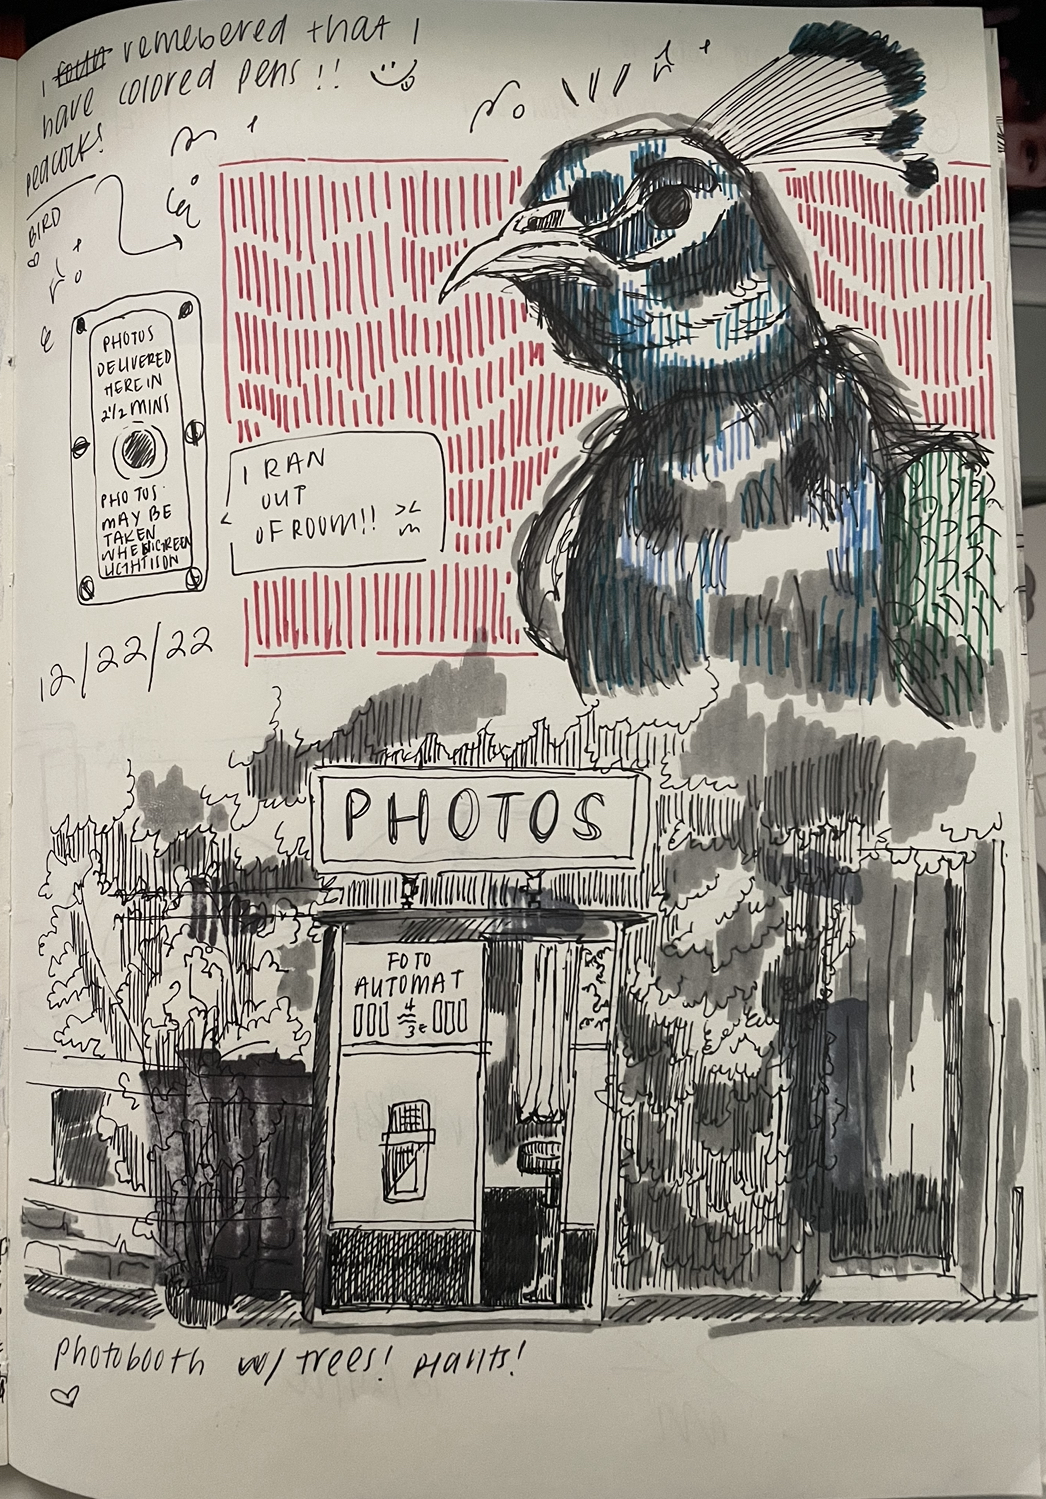 I remebered that I
have colored pens!!
peacock!
BIRD
PHOTOS
DELIVERED
HERE IN
2 1/2 MINS
PHOTOS
MAY BE
TAKEN
WHEN GREEN
LIGHT IS ON
I RAN
OUT
OF ROOM!!
12/22/22
PHOTOS
FOTO
AUTOMAT
4
3€
Photobooth w/ trees! Plants!